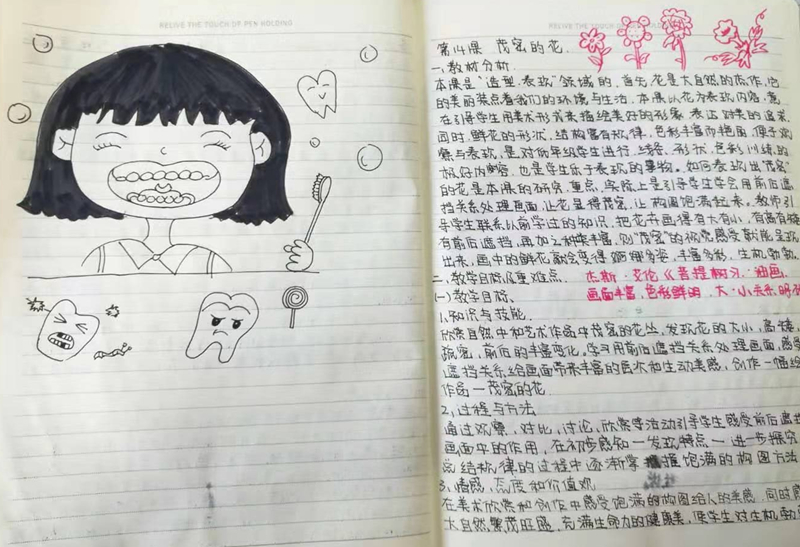 RELIVE THE TOUCH OF PEN HOLDING
RELIVE THE TOUCH OF PEN HOLDING
第14课 茂密的花.
一、教材分析.
本课是“造型·表现”领域的.首先花是大自然的杰作,它
的美丽装点着我们的环境与生活.本课以花为表现内容,意
在引导学生用美术形式来描绘美好的形象.表达对美的追求.
同时,鲜花的形状,结构富有规律,色彩丰富而艳丽,便于观
察与表现,是对低年级学生进行.线条.形状.色彩训练的
极好内容.也是学生乐于表现的事物.如何表现出“茂密”
的花是本课的研究.重点,实际上是引导学生学会用前后遮
挡关系处理画面,让花显得茂密,让构图饱满起来.教师引
导学生联系以前学过的知识,把花书画得有大有小,有高有矮
有前后遮挡,再加之种类丰富,则“茂密”的视觉感受就能呈现
出来,画中的鲜花就会变得婀娜多姿,丰富多彩,生机勃勃.
二、教学目标及重难点. 杰斯·艾伦《菩提树》.油画.
(一)教学目标、 画面丰富,色彩鲜明.大·小关系明
1.知识与技能.
欣赏自然中和艺术作品中茂密的花丛,发现花的大小,高矮,
疏密,前后的丰富变化。学习用前后遮挡关系处理画面,感受
遮挡关系给画面带来丰富的层次和生动美感,创作一幅绘
作品一茂密的花
2、过程与方法
通过观察,对比,讨论,欣赏等活动引导学生感受前后遮挡
画面中的作用,在初步感知一发现特点一进一步探究
总结规律的过程中逐渐掌握饱满的构图方法
3、情感,态度和价值观
在美术欣赏和创作中感受饱满的构图给人的美感,同时感
大自然繁茂旺盛,充满生命力的健康美,使学生对生机勃